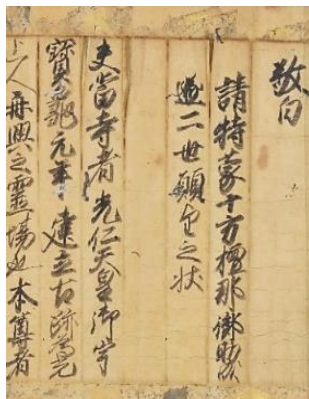 敬白
請特蒙十方檀那御助成
遂二世願望之状
夫當寺者光仁天皇御宇
寶龜元年建立古跡
上人再興之靈場也本尊者